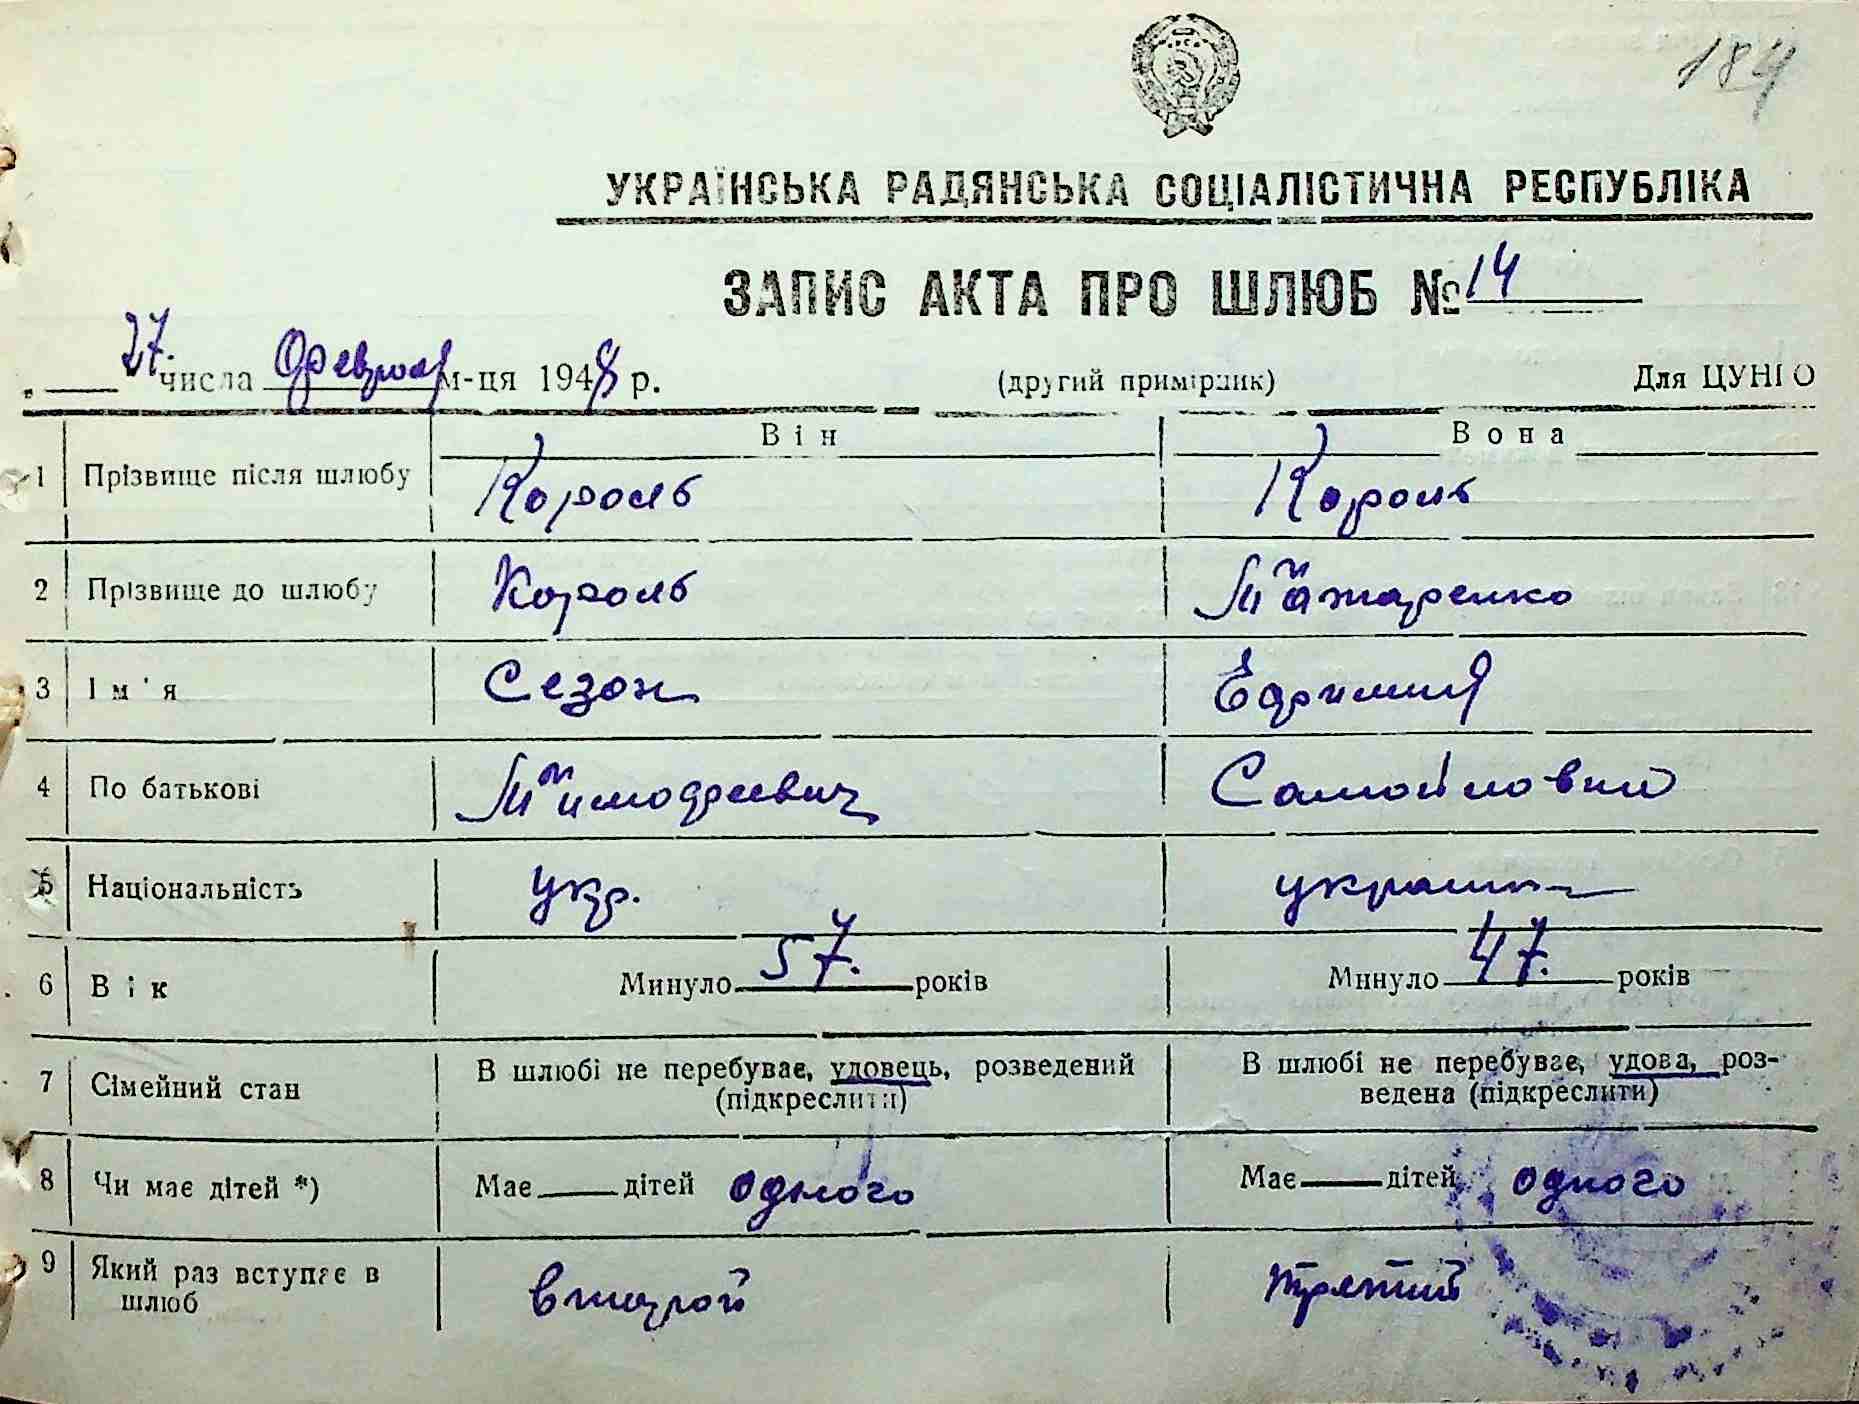 184
УКРАЇНСЬКА РАДЯНСЬКА СОЦІАЛІСТИЧНА РЕСПУБЛІКА
ЗАПИС АКТА ПРО ШЛЮБ № 14
27. числа Февраля м-ця 1948 р. (другий примірник) Для ЦУНГО
Він Вона
1 Прізвище після шлюбу Король Король
2 Прізвище до шлюбу Король
3 Ім'я Сезон Ефимия
4 По батькові Тимофеевич Самойловна
5 Національність укр. украин
6 Вік Минуло 57. років Минуло 47. років
7 Сімейний стан В шлюбі не перебуває, удовець, розведений (підкреслити) В шлюбі не перебуває, удова, роз-
ведена (підкреслити)
8 Чи має дітей *) Має дітей одного Має дітей одного
9 Який раз вступає в шлюб второй третий